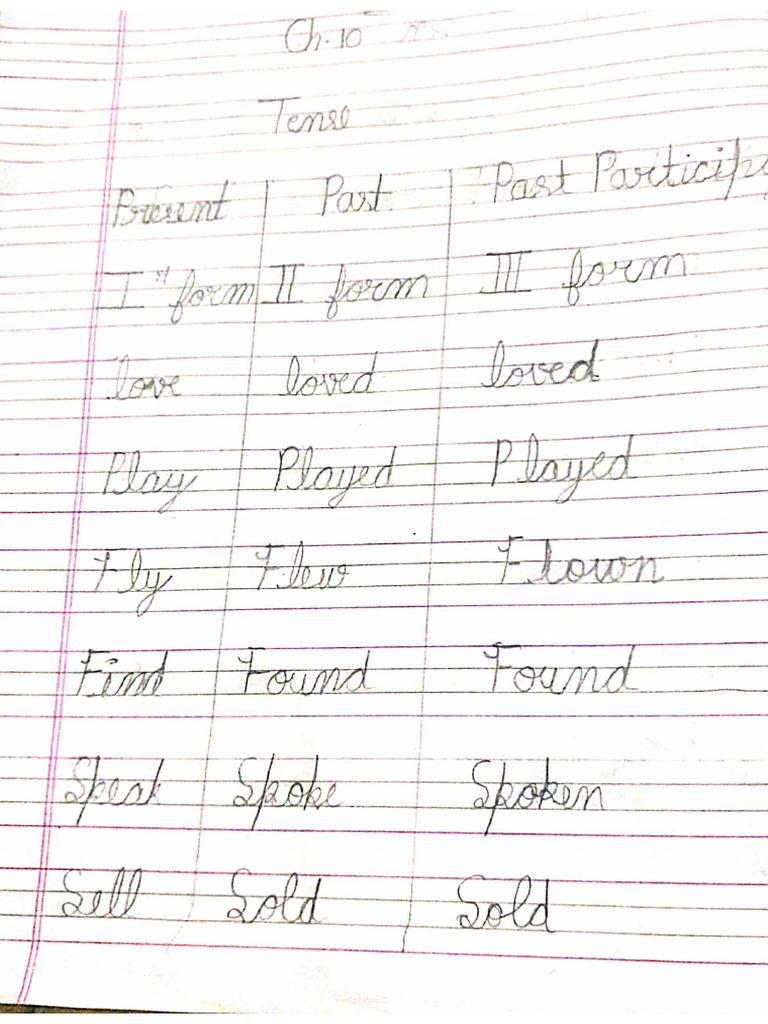 Ch. 10
Tense
Present Past Past Particip
Ist form II form III form
love loved loved
Play Played Played
Fly Flew Flown
Find Found Found
Speak Spoke Spoken
Sell Sold Sold